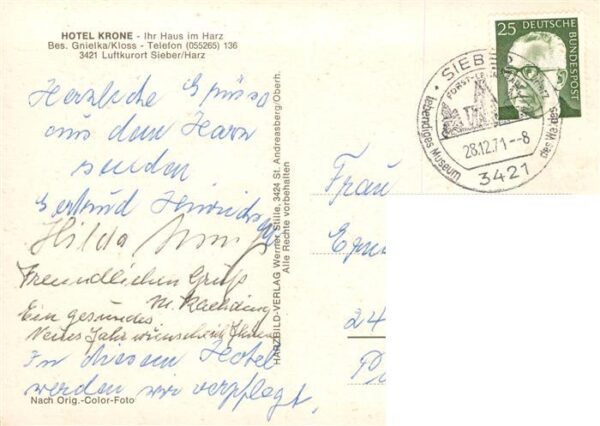 HOTEL KRONE - Ihr Haus im Harz
Bes. Gnielka/Kloss - Telefon (055265) 136
3421 Luftkurort Sieber/Harz
Herzliche Grüsse
aus dem Harz
senden
Gertrud Hinrichs
Hilda
Freundlichen Gruß
M.
Ein gesundes
Neues Jahr wünsche ich Ihnen
In diesem Hotel
werden wir verpflegt,
Nach Orig.-Color-Foto
HARZBILD-VERLAG Werner Stille, 3424 St. Andreasberg/Oberh.
Alle Rechte vorbehalten
25 DEUTSCHE BUNDESPOST
SIEBER
lebendiges Museum des Waldes
28.12.71--8
3421
Frau
24